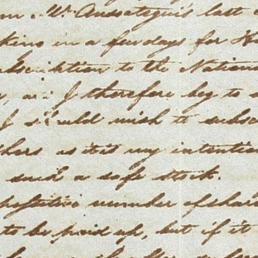 m. Mr. Anasategui's last
king in a few days for
subscription to the Nation
I therefore beg to
I should wish to subsc
thers as it is my intention
such a safe stock.
respective number of share
to be paid up, but if it